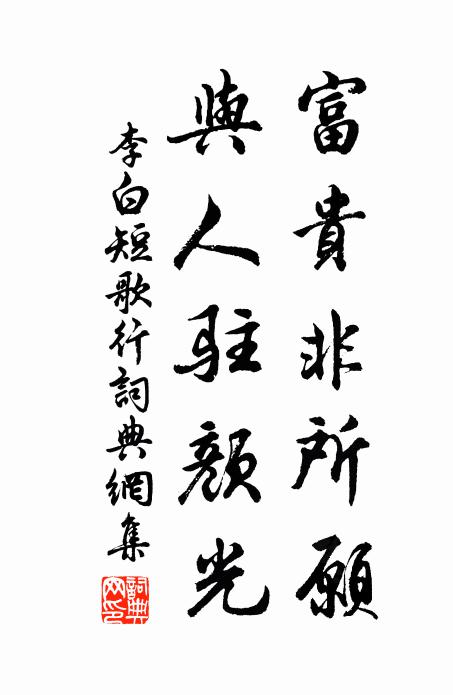 富貴非所願
與人駐顏光
李白短歌行詞典網集
詞典網印